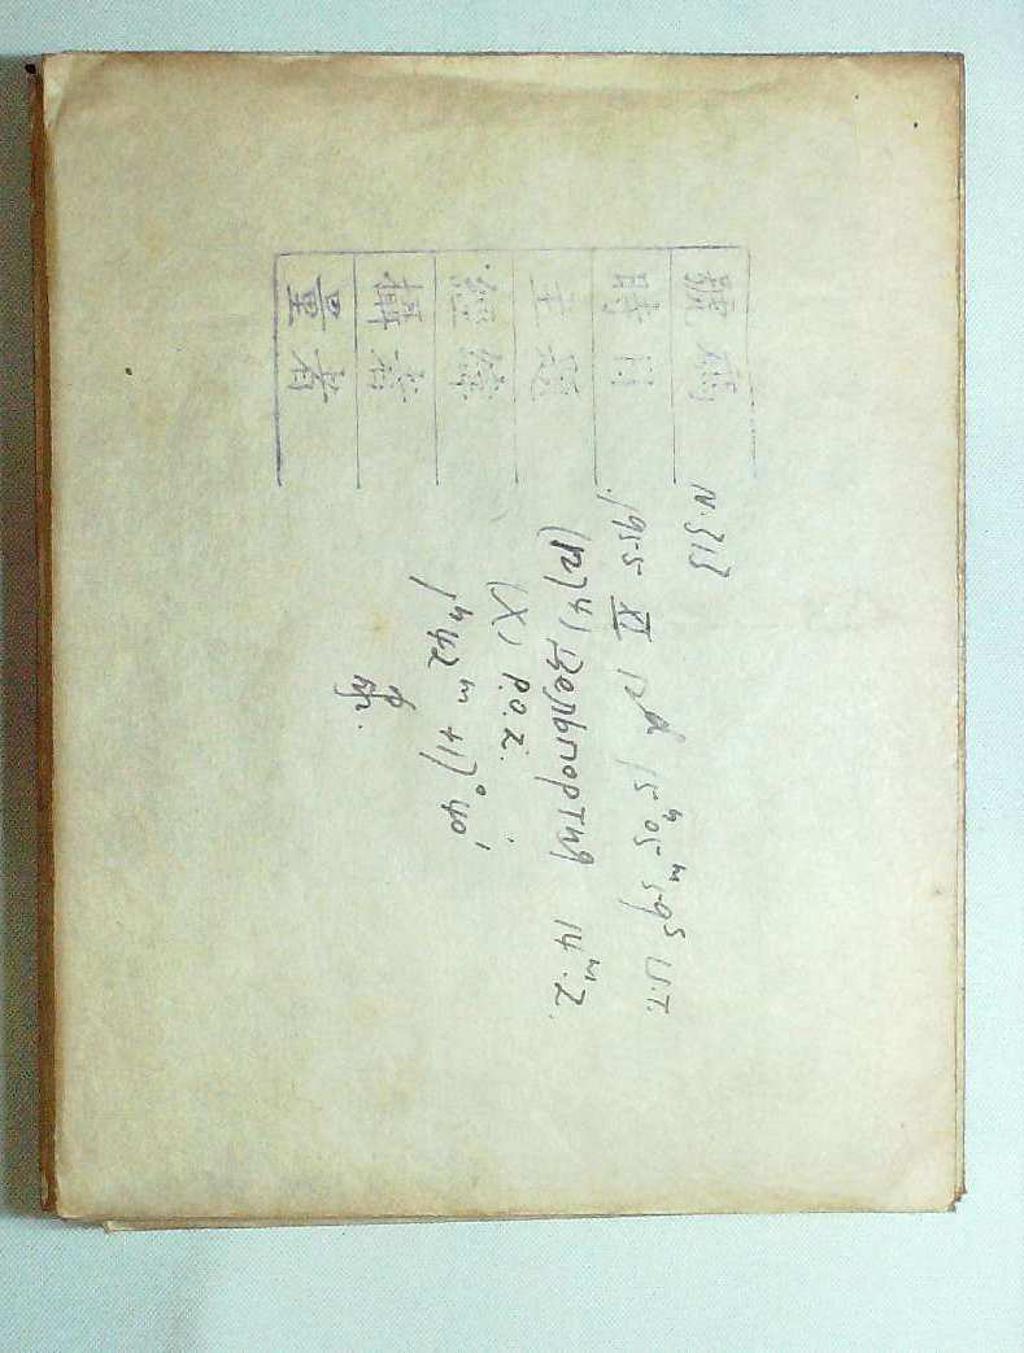 號碼 N.313
時間 1955 XI 12ᵈ 15ʰ05ᵐ59ˢ U.T.
主題 (1274) Дельпортия 14ᵐ.2
(X, P.O.Z.
經緯 1ʰ42ᵐ +17°40'
攝者
量者